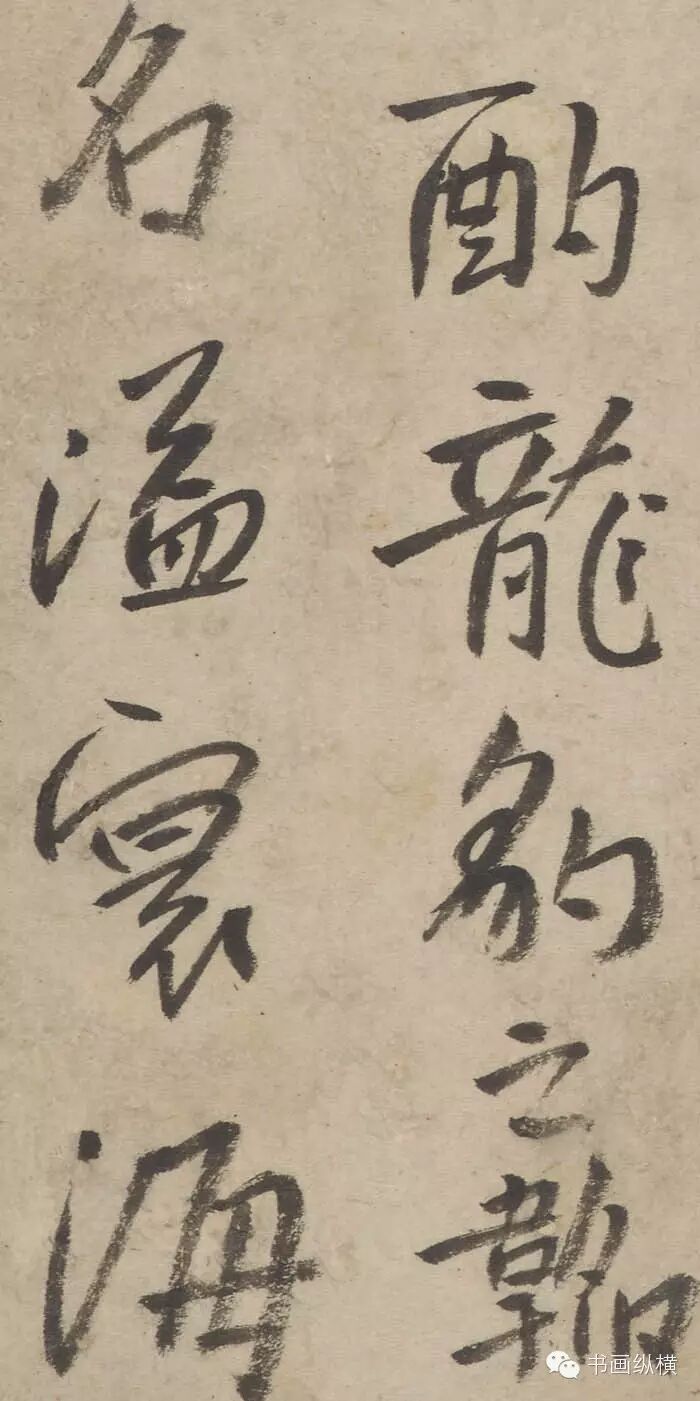 酌龍豹之韜
名溢寰海
书画纵横